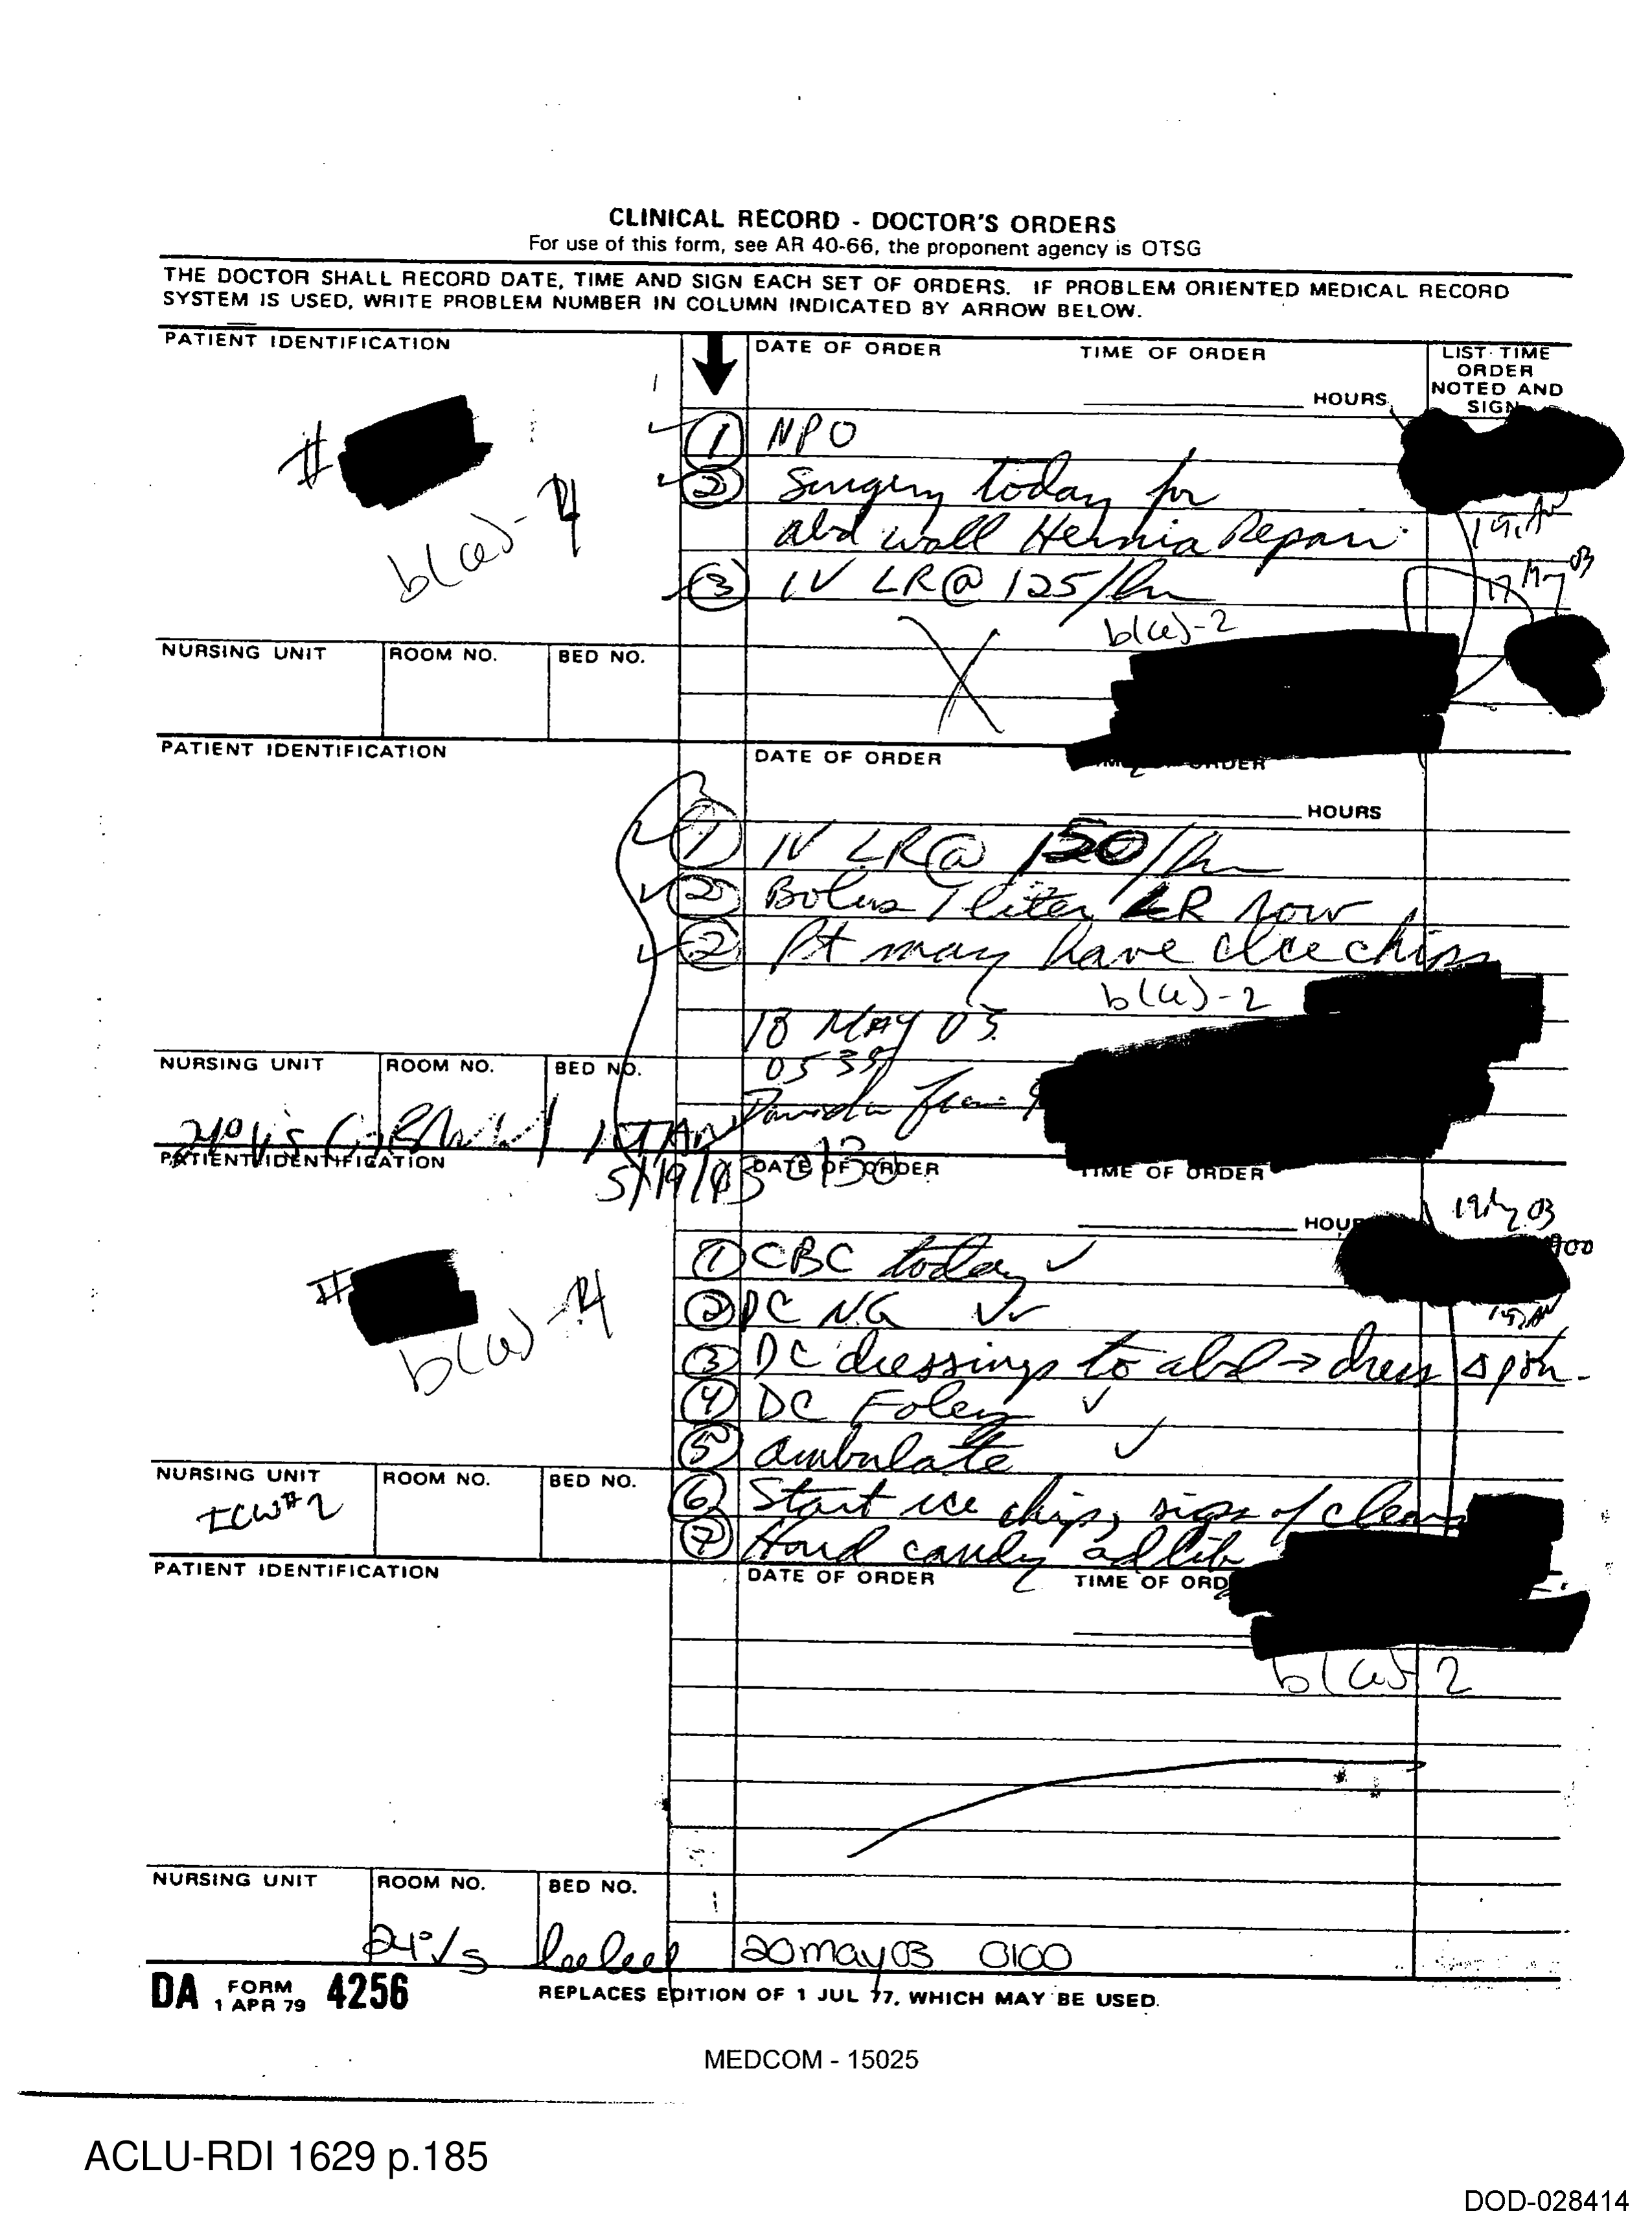 CLINICAL RECORD - DOCTOR'S ORDERS
For use of this form, see AR 40-66, the proponent agency is OTSG
THE DOCTOR SHALL RECORD DATE, TIME AND SIGN EACH SET OF ORDERS. IF PROBLEM ORIENTED MEDICAL RECORD
SYSTEM IS USED, WRITE PROBLEM NUMBER IN COLUMN INDICATED BY ARROW BELOW.
PATIENT IDENTIFICATION
DATE OF ORDER
TIME OF ORDER
LIST TIME
ORDER
NOTED AND
SIGN
HOURS
#
b(6)-4
① NPO
② Surgery today for
abd wall Hernia Repair
③ IV LR @ 125/hr
b(6)-2
NURSING UNIT
ROOM NO.
BED NO.
PATIENT IDENTIFICATION
DATE OF ORDER
ORDER
HOURS
① IV LR @ 150/hr
② Bolus 1 liter LR now
② Pt may have ice chips
b(6)-2
18 MAY 03
0535
NURSING UNIT
ROOM NO.
BED NO.
5/19/03 0130
PATIENT IDENTIFICATION
DATE OF ORDER
TIME OF ORDER
HOU
#
b(6)-4
① CBC today ✓
② DC NG
③ DC dressings to abd → dress Δ prn
④ DC Foley ✓
⑤ ambulate ✓
⑥ Start ice chips, sips of clear
⑦ Hard candy ad lib
NURSING UNIT
ROOM NO.
BED NO.
ICW#2
PATIENT IDENTIFICATION
DATE OF ORDER
TIME OF ORD
b(6)-2
NURSING UNIT
ROOM NO.
BED NO.
20 may 03 0100
DA FORM 4256
1 APR 79
REPLACES EDITION OF 1 JUL 77, WHICH MAY BE USED.
MEDCOM - 15025
ACLU-RDI 1629 p.185
DOD-028414